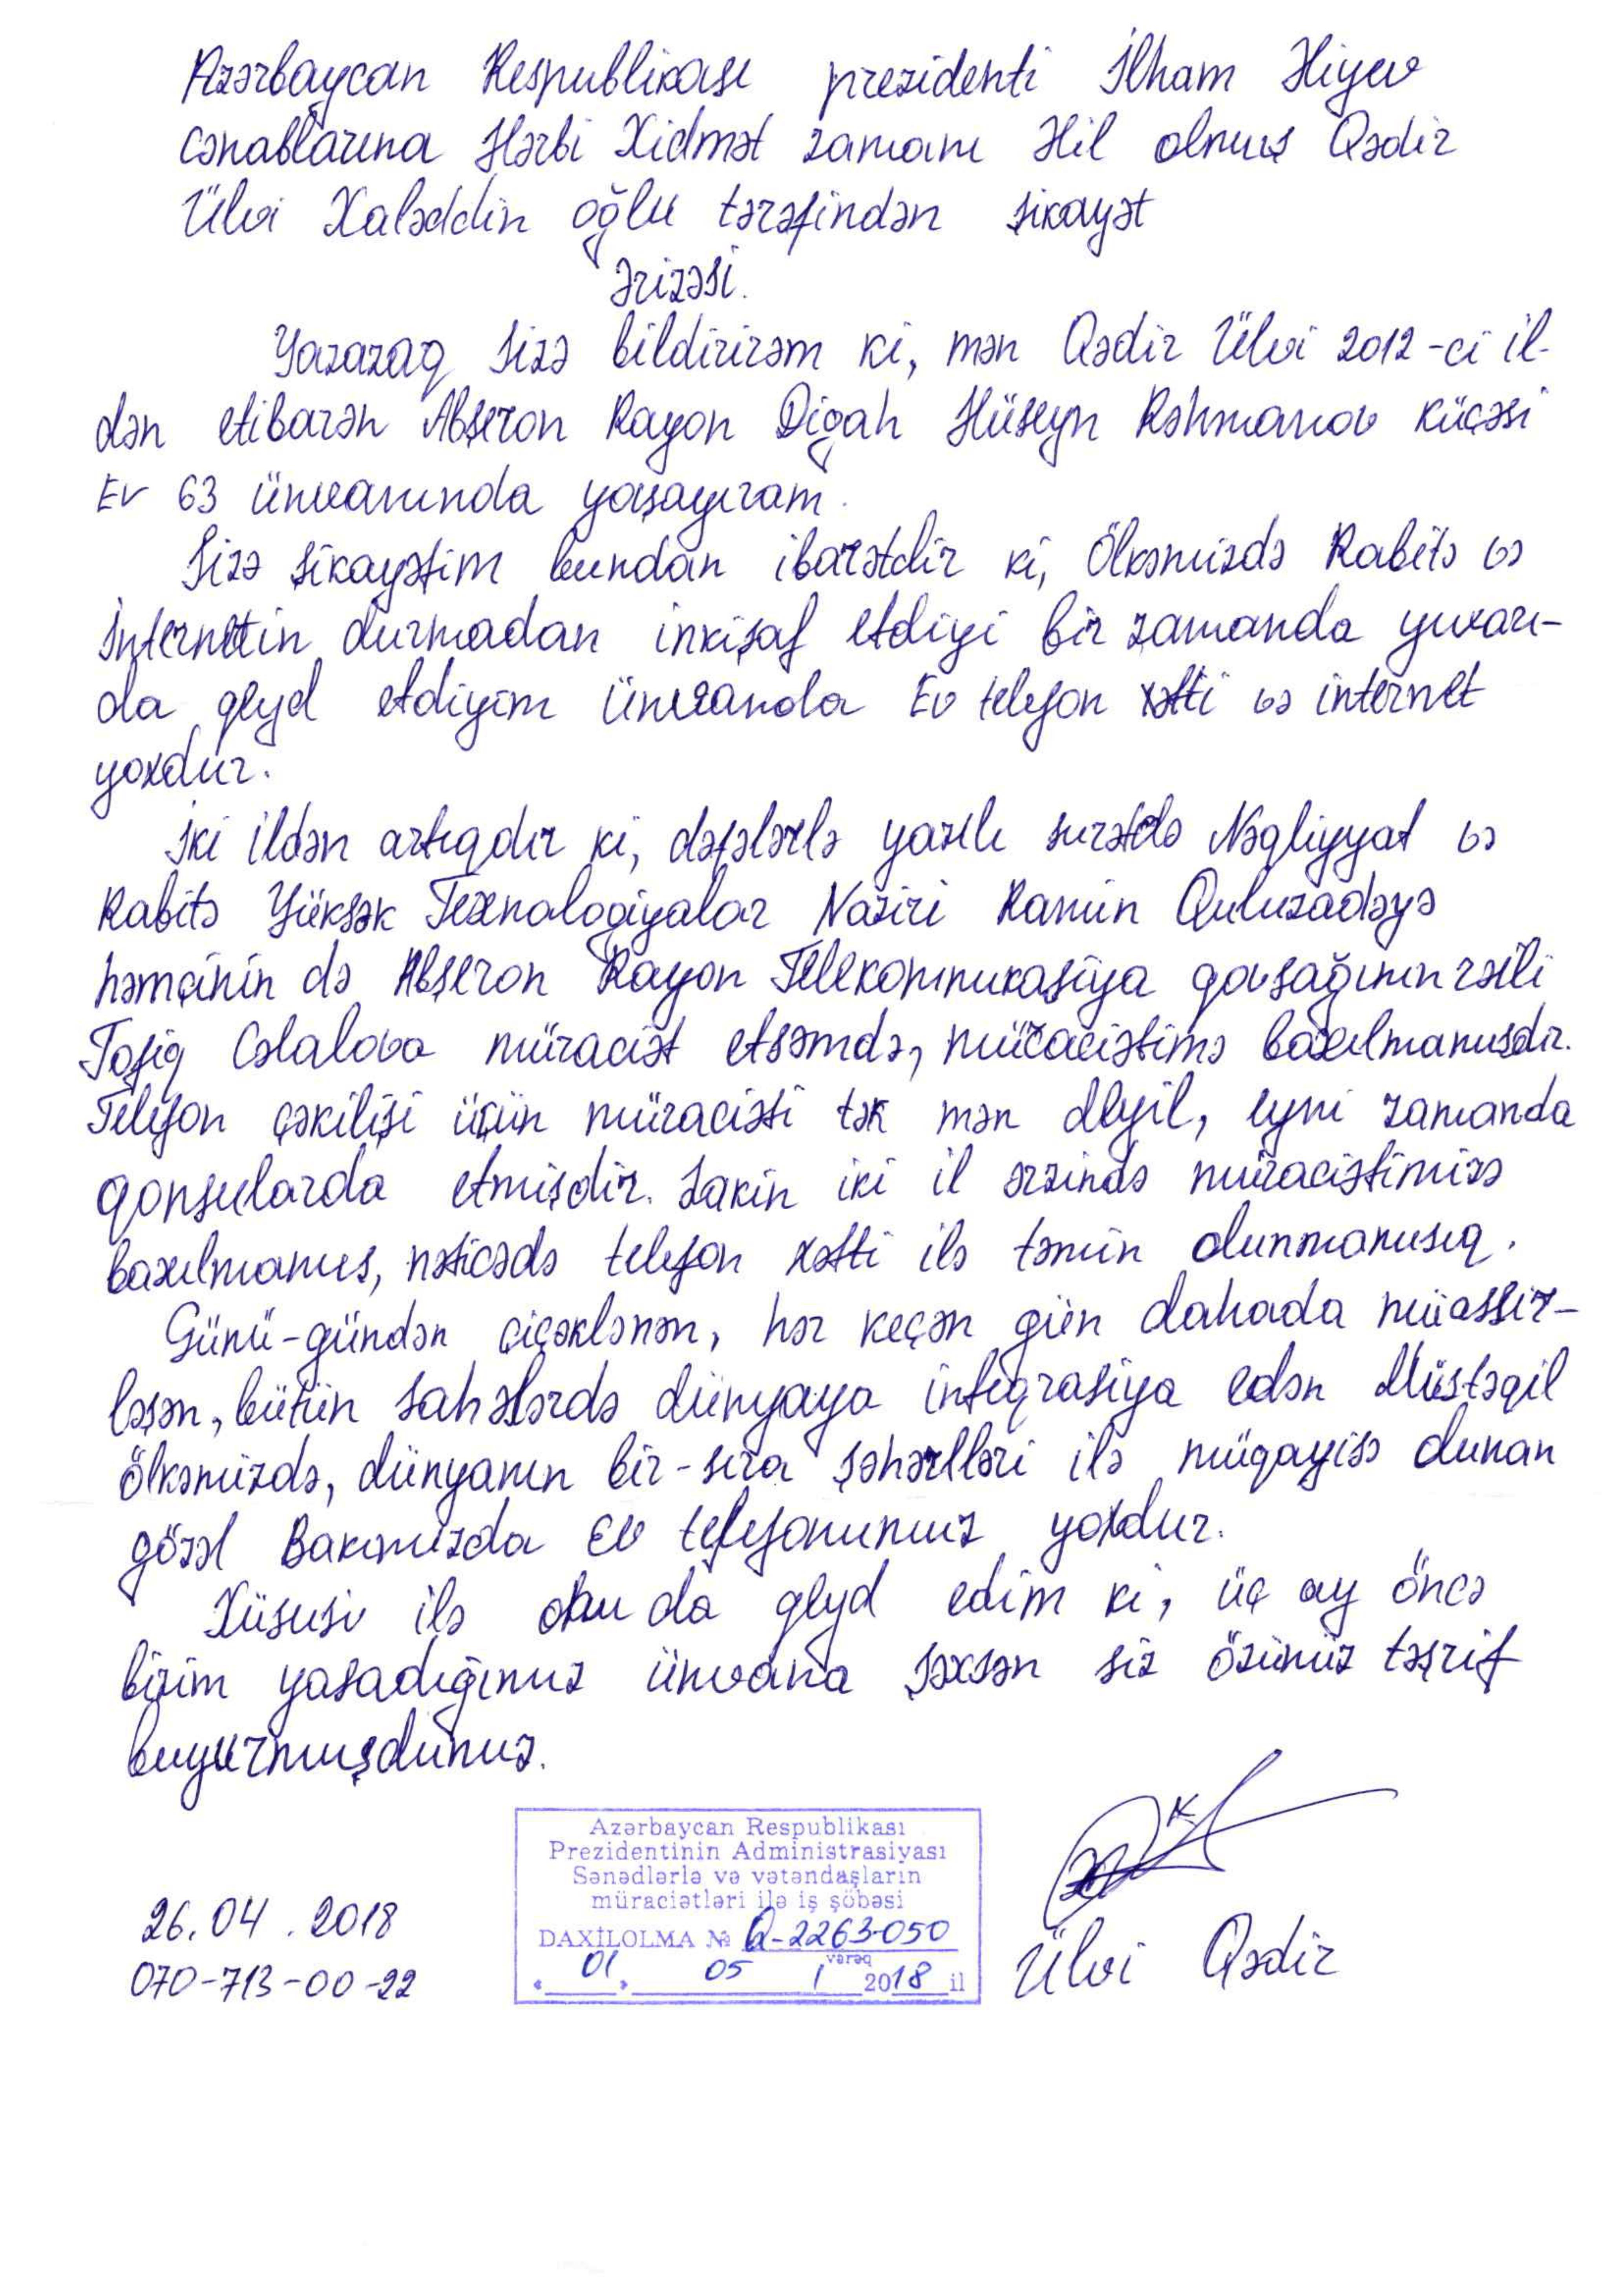 Azərbaycan Respublikası prezidenti İlham Əliyev
cənablarına Hərbi Xidmət zamanı Əlil olmuş Qədir
Ülvi Xaləddin oğlu tərəfindən şikayət
Ərizəsi.
Yazaraq Sizə bildirirəm ki, mən Qədir Ülvi 2012-ci il-
dən etibarən Abşeron Rayon Digah Hüseyn Rəhmanov küçəsi
Ev 63 ünvanında yaşayıram.
Sizə şikayətim bundan ibarətdir ki, Ölkəmizdə Rabitə və
İnternetin durmadan inkişaf etdiyi bir zamanda yuxarı-
da qeyd etdiyim ünvanda Ev telefon xətti və internet
yoxdur.
İki ildən artıqdır ki, dəfələrlə yazılı surətdə Nəqliyyat və
Rabitə Yüksək Texnologiyalar Naziri Ramin Quluzadəyə
həmçinin də Abşeron Rayon Telekommukasiya qovşağının rəili
Tofiq Cəlalova müraciət etsəmdə, müraciətimə baxılmamışdır.
Telefon çəkilişi üçün müraciəti tək mən deyil, eyni zamanda
qonşularda etmişdir. Lakin iki il ərzində müraciətimizə
baxılmamış, nəticədə telefon xətti ilə təmin olunmamışıq.
Günü-gündən çiçəklənən, hər keçən gün dahada müassir-
ləşən, bütün sahələrdə dünyaya inteqrasiya edən Müstəqil
ölkəmizdə, dünyanın bir-sıra şəhərlləri ilə müqayisə olunan
gözəl Bakımızda Ev telefonumuz yoxdur.
Xüsusi ilə onu da qeyd edim ki, üç ay öncə
bizim yaşadığımız ünvana şəxsən siz özünüz təşrif
buyurmuşdunuz.
Azərbaycan Respublikası
Prezidentinin Administrasiyası
Sənədlərlə və vətəndaşların
müraciətləri ilə iş şöbəsi
DAXİLOLMA № Q-2263-050
vərəq
« 01 » 05 1 2018 il
26.04.2018
070-713-00-22
Ülvi Qədir